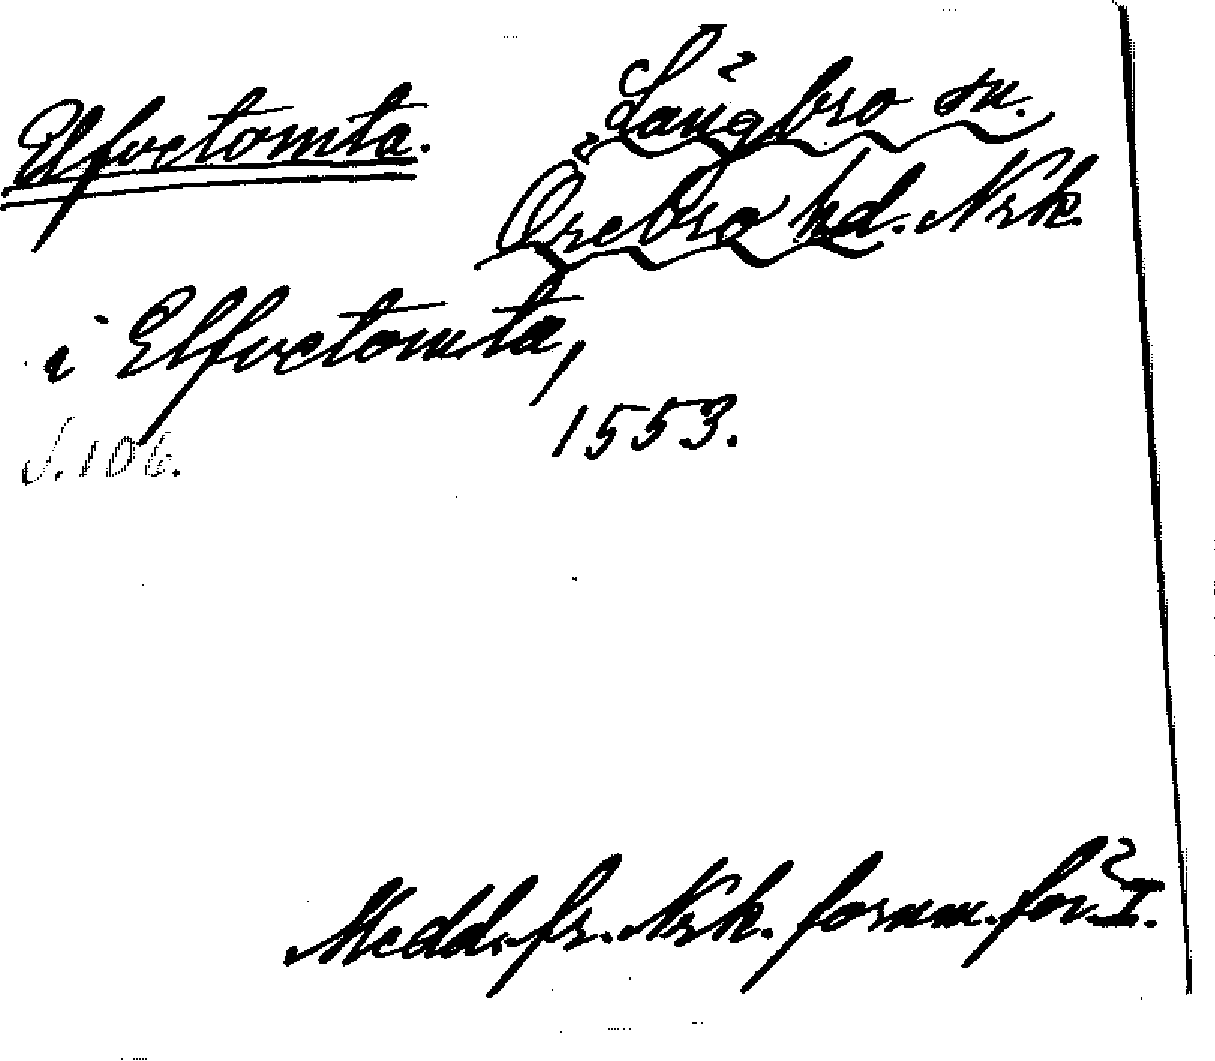 Elfvetomta.
Långbro sn.
Örebro hd. Nrk.
i Elfvetomta,
1553.
S. 106.
Medd. fr. Nrk. fornm. för. I.